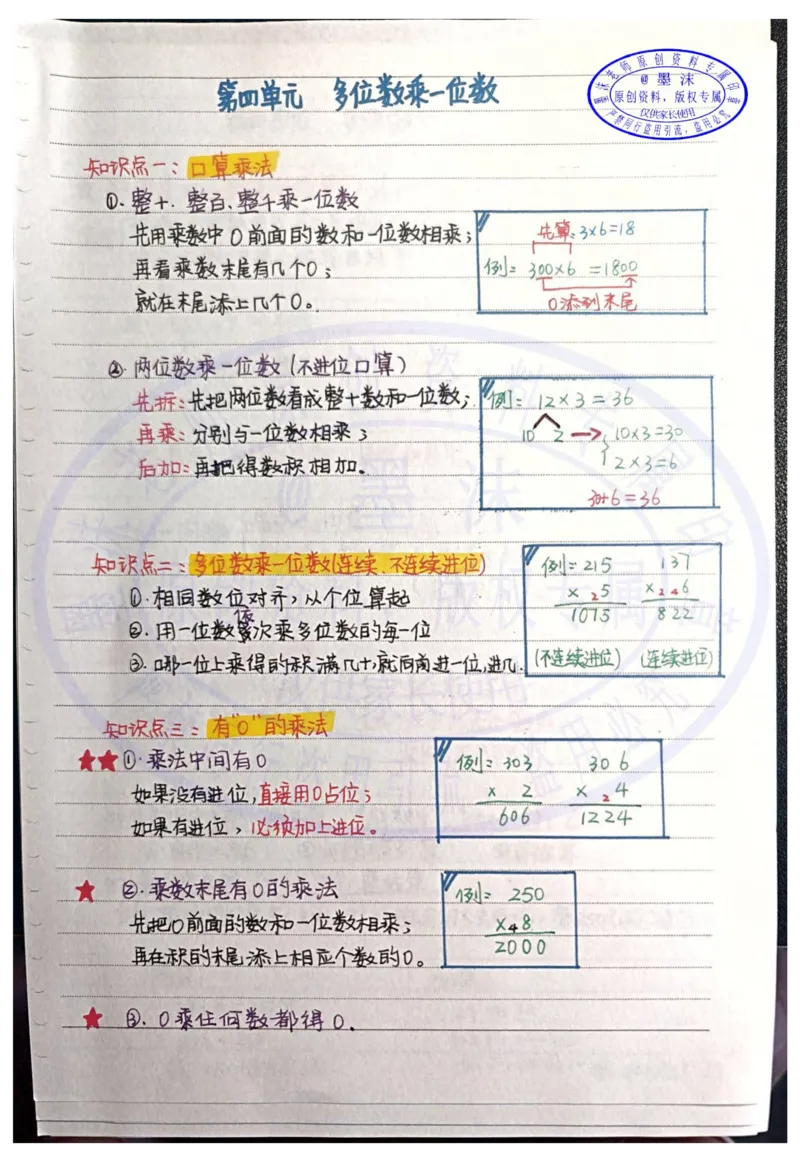 第四单元 多位数乘一位数
墨沫老师原创资料专属印章
@墨沫
原创资料，版权专属
仅供家长使用
严禁同行盗用引流，盗用必究
知识点一：口算乘法
①.整十、整百、整千乘一位数
先用乘数中0前面的数和一位数相乘；
再看乘数末尾有几个0；
就在末尾添上几个0。
先算：3×6=18
例：300×6 =1800
0添到末尾
②.两位数乘一位数（不进位口算）
先拆：先把两位数看成整十数和一位数；
再乘：分别与一位数相乘；
后加：再把得数积相加。
例：12×3=36
10 2 → 10×3=30
2×3=6
30+6=36
知识点二：多位数乘一位数(连续、不连续进位)
①.相同数位对齐，从个位算起
②.用一位数依次乘多位数的每一位
③.哪一位上乘得的积满几十，就向前进一位，进几.
例：215 137
× 2 5 × 2 4 6
1075 822
(不连续进位) (连续进位)
知识点三：有“0”的乘法
★★①.乘法中间有0
如果没有进位，直接用0占位；
如果有进位，必须加上进位。
例：303 306
× 2 × 2 4
606 1224
★ ②.乘数末尾有0的乘法
先把0前面的数和一位数相乘；
再在积的末尾添上相应个数的0。
例：250
×4 8
2000
★ ③.0乘任何数都得0.